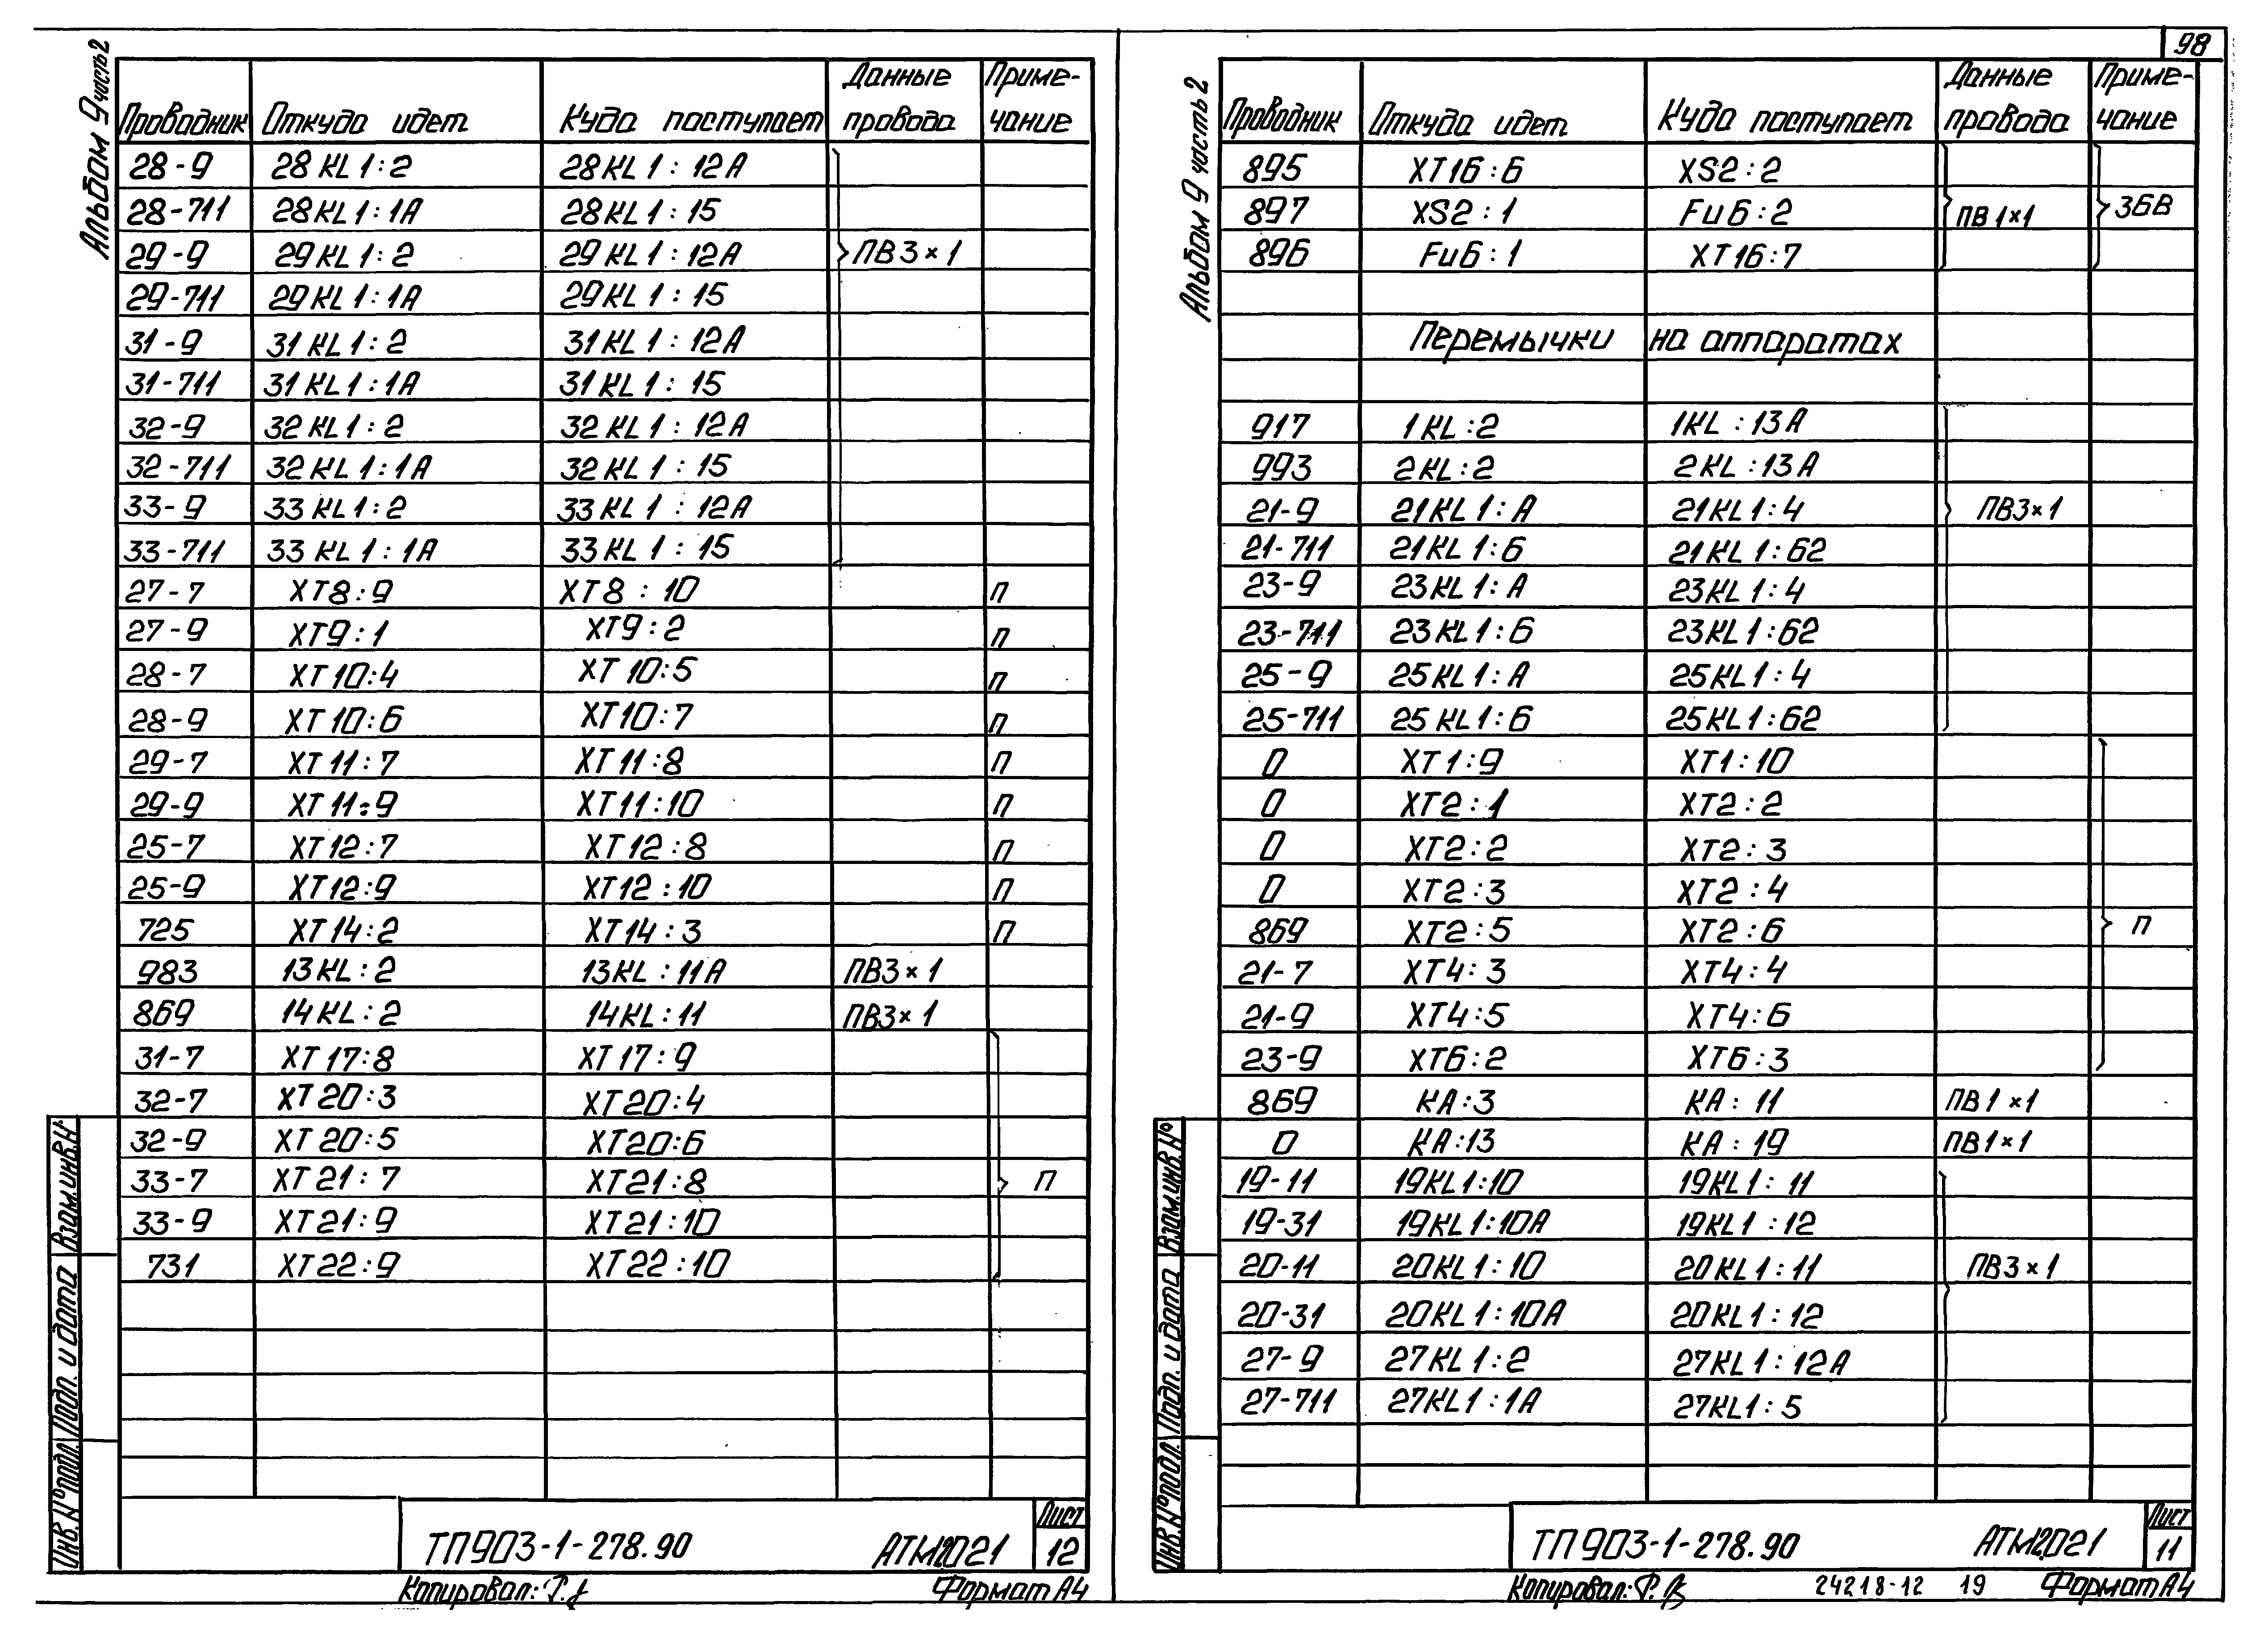 98
Альбом 9 часть 2
Проводник Откуда идет Куда поступает Данные провода Примечание
28-9 28KL1:2 28KL1:12А
28-711 28KL1:1А 28KL1:15
29-9 29KL1:2 29KL1:12А ПВ3×1
29-711 29KL1:1А 29KL1:15
31-9 31KL1:2 31KL1:12А
31-711 31KL1:1А 31KL1:15
32-9 32KL1:2 32KL1:12А
32-711 32KL1:1А 32KL1:15
33-9 33KL1:2 33KL1:12А
33-711 33KL1:1А 33KL1:15
27-7 XT8:9 XT8:10 П
27-9 XT9:1 XT9:2 П
28-7 XT10:4 XT10:5 П
28-9 XT10:6 XT10:7 П
29-7 XT11:7 XT11:8 П
29-9 XT11:9 XT11:10 П
25-7 XT12:7 XT12:8 П
25-9 XT12:9 XT12:10 П
725 XT14:2 XT14:3 П
983 13KL:2 13KL:11А ПВ3×1
869 14KL:2 14KL:11 ПВ3×1
31-7 XT17:8 XT17:9
32-7 XT20:3 XT20:4
32-9 XT20:5 XT20:6
33-7 XT21:7 XT21:8 П
33-9 XT21:9 XT21:10
731 XT22:9 XT22:10
Инв.№подл. Подп. и дата Взам.инв.№
ТП903-1-278.90 АТМ12.021 Лист 12
Копировал: Формат А4
Альбом 9 часть 2
Проводник Откуда идет Куда поступает Данные провода Примечание
895 XT16:6 XS2:2
897 XS2:1 Fu6:2 ПВ1×1 36В
896 Fu6:1 XT16:7
Перемычки на аппаратах
917 1KL:2 1KL:13А
993 2KL:2 2KL:13А
21-9 21KL1:А 21KL1:4 ПВ3×1
21-711 21KL1:Б 21KL1:62
23-9 23KL1:А 23KL1:4
23-711 23KL1:Б 23KL1:62
25-9 25KL1:А 25KL1:4
25-711 25KL1:Б 25KL1:62
0 XT1:9 XT1:10
0 XT2:1 XT2:2
0 XT2:2 XT2:3
0 XT2:3 XT2:4
869 XT2:5 XT2:6 П
21-7 XT4:3 XT4:4
21-9 XT4:5 XT4:6
23-9 XT6:2 XT6:3
869 КА:3 КА:11 ПВ1×1
0 КА:13 КА:19 ПВ1×1
19-11 19KL1:10 19KL1:11
19-31 19KL1:10А 19KL1:12
20-11 20KL1:10 20KL1:11 ПВ3×1
20-31 20KL1:10А 20KL1:12
27-9 27KL1:2 27KL1:12А
27-711 27KL1:1А 27KL1:5
Инв.№подл. Подп. и дата Взам.инв.№
ТП903-1-278.90 АТМ12.021 Лист 11
Копировал: 24218-12 19 Формат А4